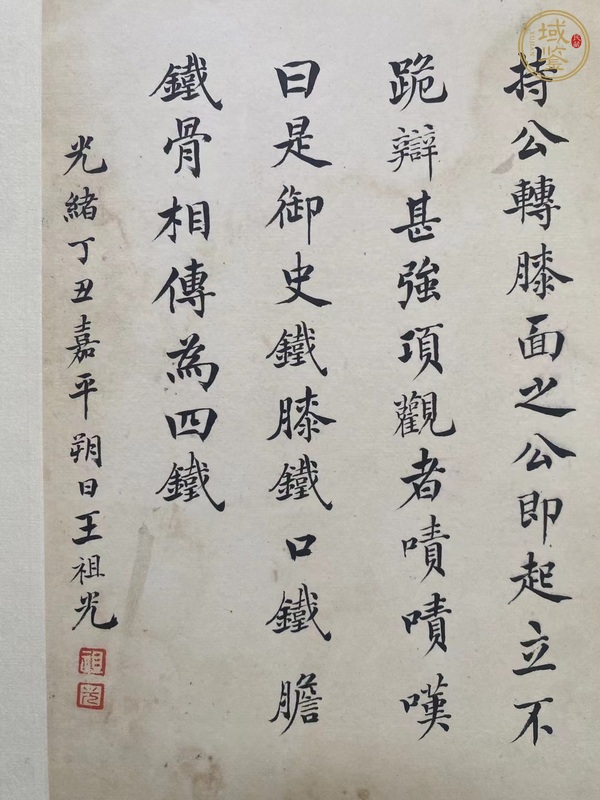 持公轉膝面之公即起立不
跪辯甚強項觀者嘖嘖嘆
曰是御史鐵膝鐵口鐵膽
鐵骨相傳為四鐵
光緒丁丑嘉平朔日王祖光
域鑒